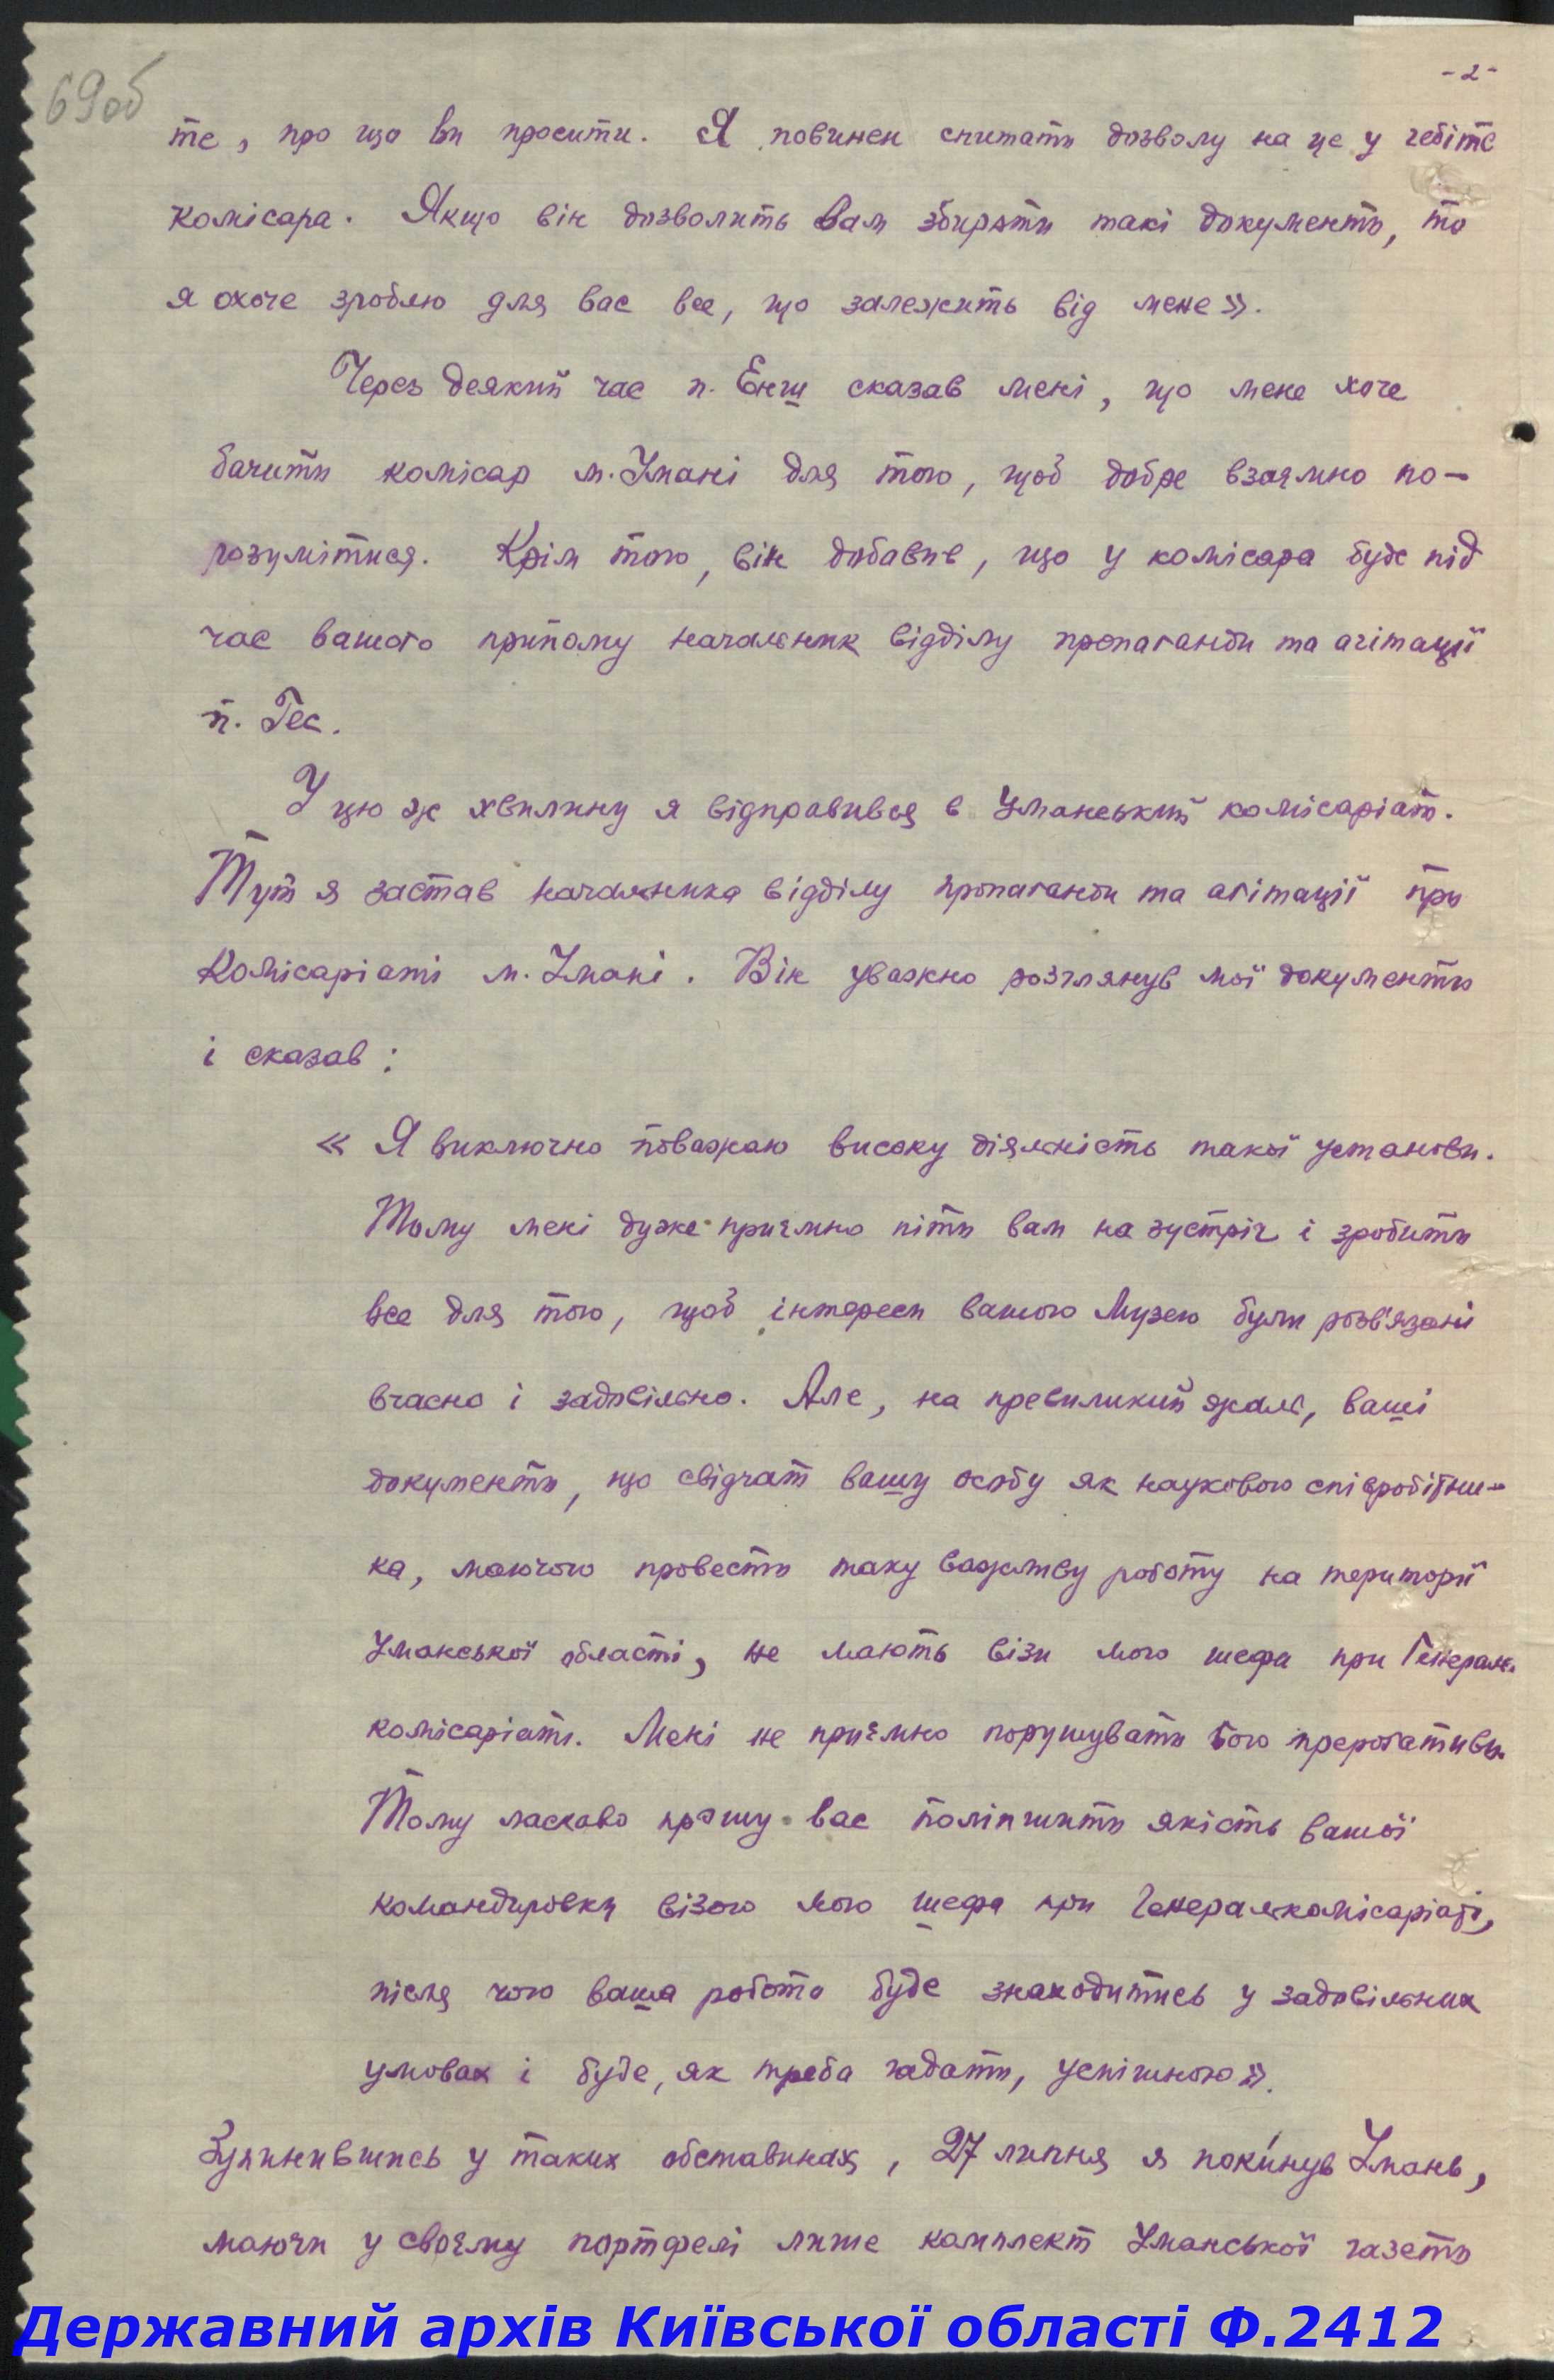 69об
-2-
те, про що ви просити. Я повинен спитати дозволу на це у гебітс
комісара. Якщо він дозволить Вам збирати такі документи, то
я охоче зроблю для вас все, що залежить від мене».
Через деякий час п. Енш сказав мені, що мене хоче
бачити комісар м. Умані для того, щоб добре взаємно по-
розумітися. Крім того, він добавив, що у комісара буде під
час вашого прийому начальник відділу пропаганди та агітації
п. Гес.
У цю ж хвилину я відправився в Уманський комісаріат.
Тут я застав начальника відділу пропаганди та агітації при
Комісаріаті м. Умані. Він уважно розглянув мої документи
і сказав:
« Я виключно поважаю високу діяльність такої установи.
Тому мені дуже приємно піти вам на зустріч і зробити
все для того, щоб інтереси вашого Музею були розв'язані
вчасно і задовільно. Але, на превиликий жаль, ваші
документи, що свідчат вашу особу як наукового співробітни-
ка, маючого провести таку важливу роботу на території
Уманської області, не мають візи мого шефа при Генераль.
комісаріаті. Мені не приємно порушувати його прерогативи.
Тому ласкаво прошу вас поліпшити якість вашої
командировки візою мого шефа при Генералькомісаріаті,
після чого ваша робота буде знаходитись у задовільних
умовах і буде, як треба гадати, успішною».
Зупинившись у таких обставинах, 27 липня я покинув Умань,
маючи у своєму портфелі лише комплект Уманської газети
Державний архів Київської області Ф.2412